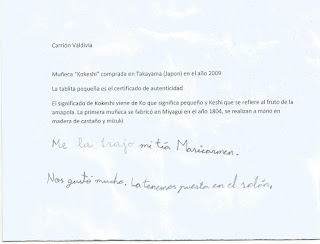 Carrión Valdivia
Muñeca "Kokeshi" comprada en Takayama (Japon) en el año 2009
La tablita pequeña es el certificado de autenticidad
El significado de Kokeshi viene de Ko que significa pequeño y Keshi que se refiere al fruto de la
amapola. La primera muñeca se fabricó en Miyagui en el año 1804, se realizan a mano en
madera de castaño y mizuki
Me la trajo mi tía Maricarmen.
Nos gustó mucho. La tenemos puesta en el salón.